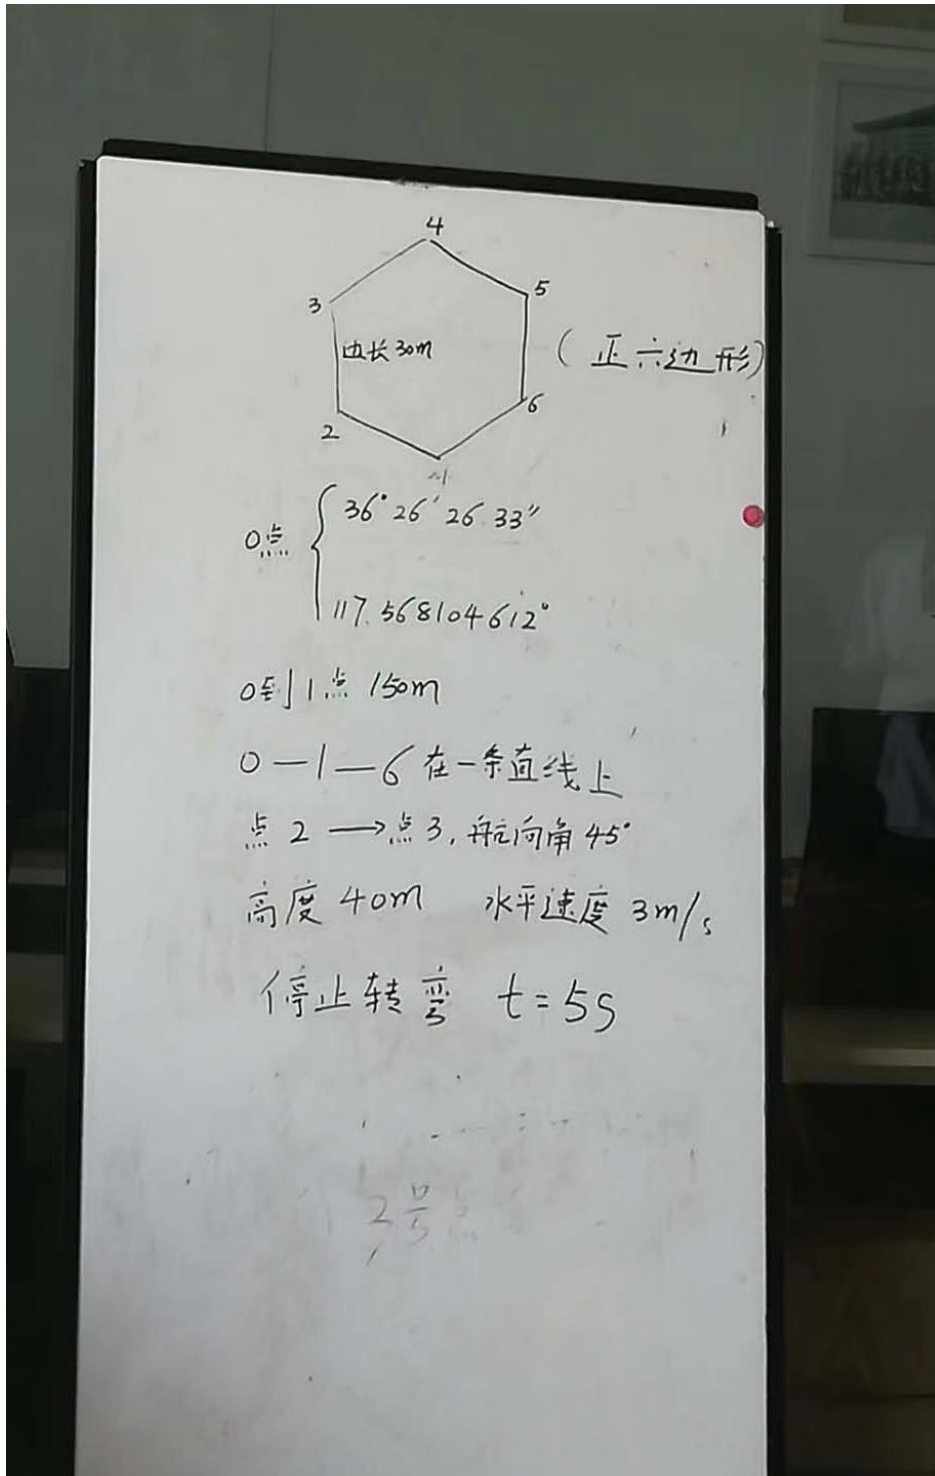 4
3
5
边长30m
(正六边形)
6
2
1
0点
36°26′26.33″
117.568104612°
0到1点 150m
0—1—6在一条直线上
点2→点3,航向角45°
高度40m 水平速度3m/s
停止转弯 t=5s
2号点